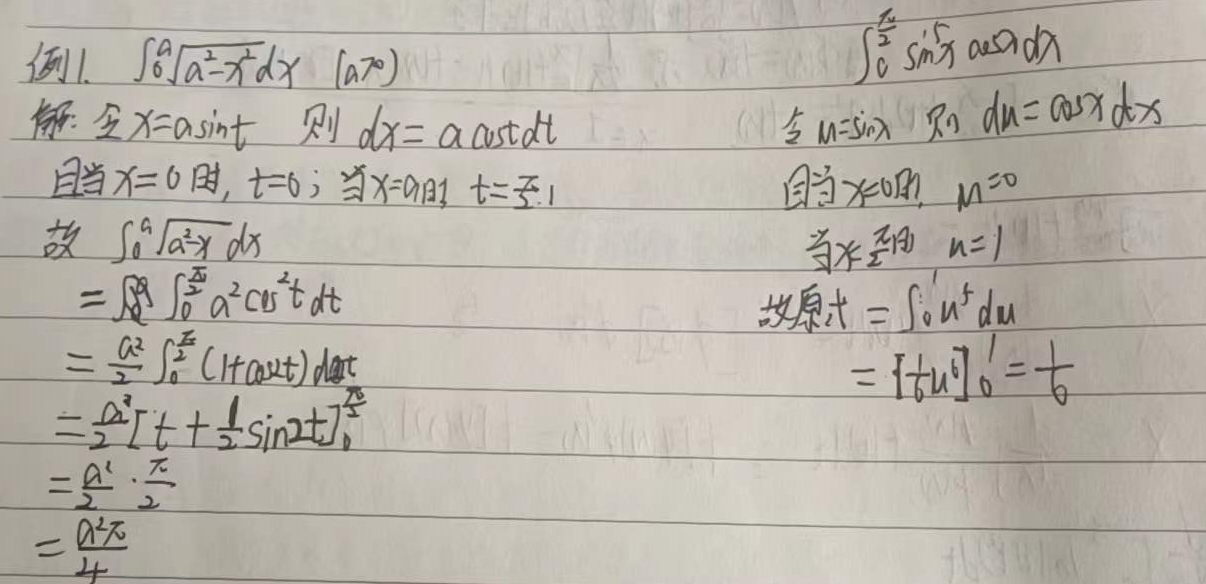 例1. ∫₀ᵃ √(a²-x²) dx (a>0)
解: 令 x=asint 则 dx = a cost dt
且当 x=0 时, t=0; 当 x=a时, t=π/2.
故 ∫₀ᵃ √(a²-x) dx
= ∫₀^(π/2) a² cos²t dt
= a²/2 ∫₀^(π/2) (1+cos2t) dt
= a²/2 [t + 1/2 sin2t]₀^(π/2)
= a²/2 · π/2
= a²π/4
∫₀^(π/2) sin⁵x cosx dx
令 u=sinx 则 du = cosx dx
且当 x=0时, u=0
当 x=π/2时 u=1
故原式 = ∫₀¹ u⁵ du
= [1/6 u⁶]₀¹ = 1/6